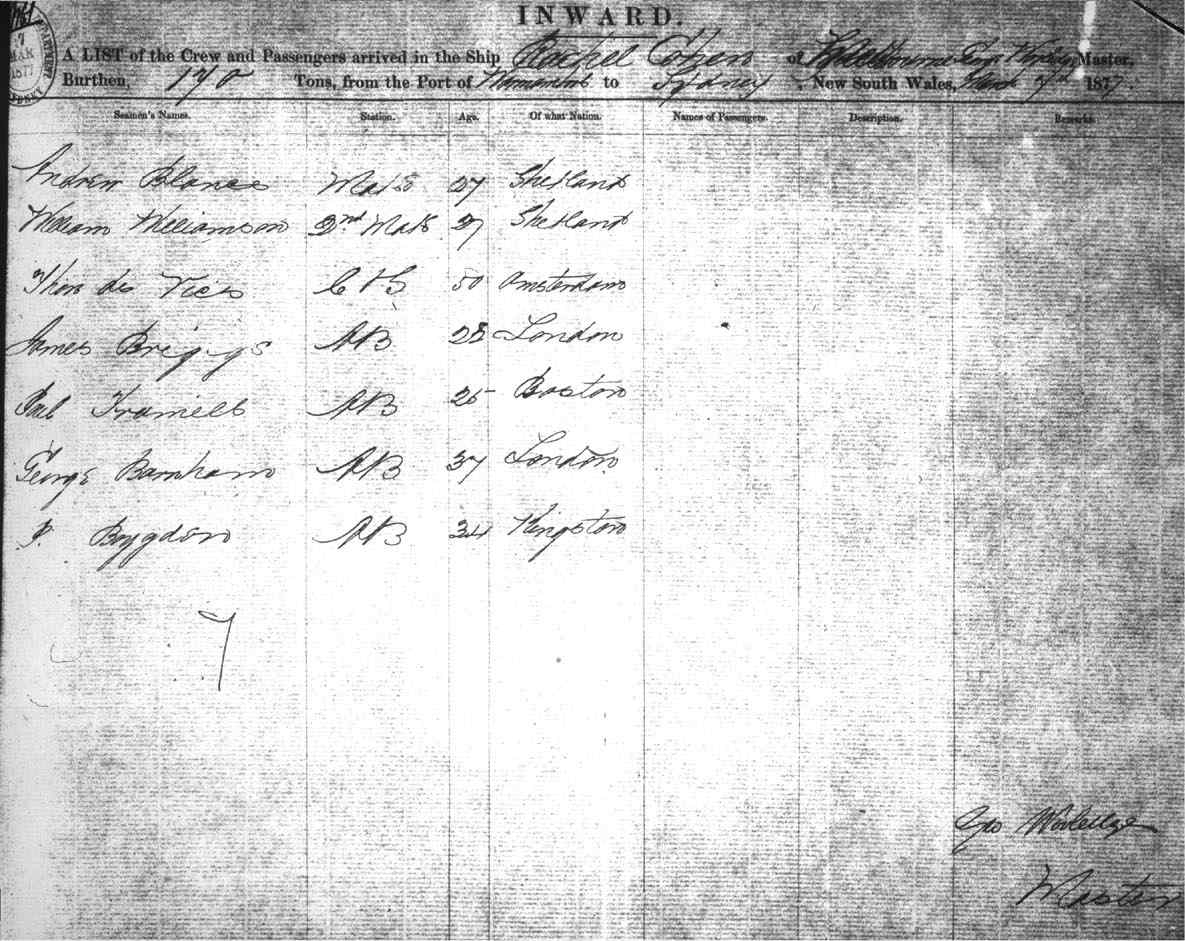 INWARD.
7
MAR
1877
A LIST of the Crew and Passengers arrived in the Ship Rachel Cohen of Melbourne Master,
Burthen, 170 Tons, from the Port of to Sydney, New South Wales, March 7th 1877
Seamen's Names. Station. Age. Of what Nation. Names of Passengers. Description. Remarks.
Andrew Blance Mate 27 Shetland
William Williamson 2nd Mate 27 Shetland
Thos de Vies C & S 50 Amsterdam
James Briggs AB 28 London
Paul AB 25 Boston
George Barnham AB 37 London
P. Boygdon AB 34 Kingston
7
Geo
Master